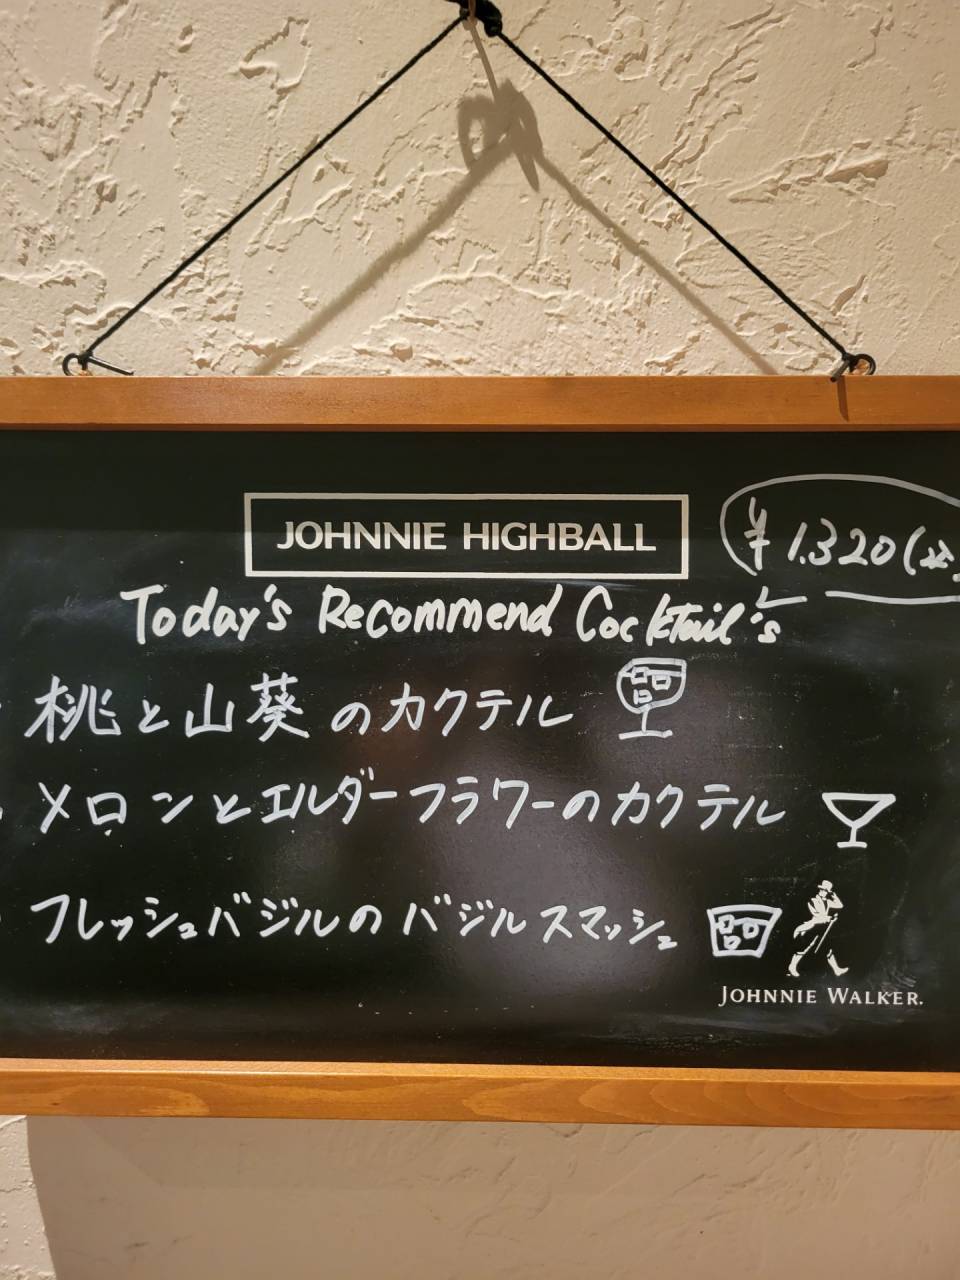 JOHNNIE HIGHBALL
¥1.320(
Today's Recommend Cocktail's
桃と山葵のカクテル
メロンとエルダーフラワーのカクテル
フレッシュバジルのバジルスマッシュ
JOHNNIE WALKER.